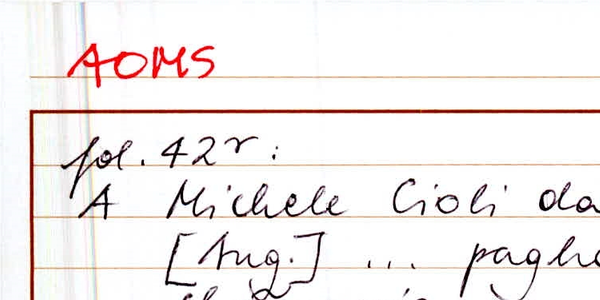 AOMS
fol. 42r:
A Michele Cioli da
[Aug.] ... pagh